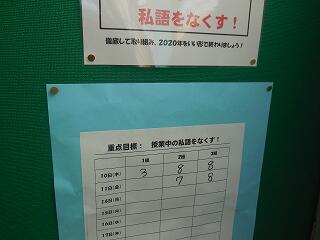 私語をなくす！
徹底して取り組み、2020年をいい形で終わりましょう！
重点目標： 授業中の私語をなくす！
1組 2組 3組
10日(木) 3 8 8
11日(金) 7 8
14日(月)
15日(火)
16日(水)
17日(木)